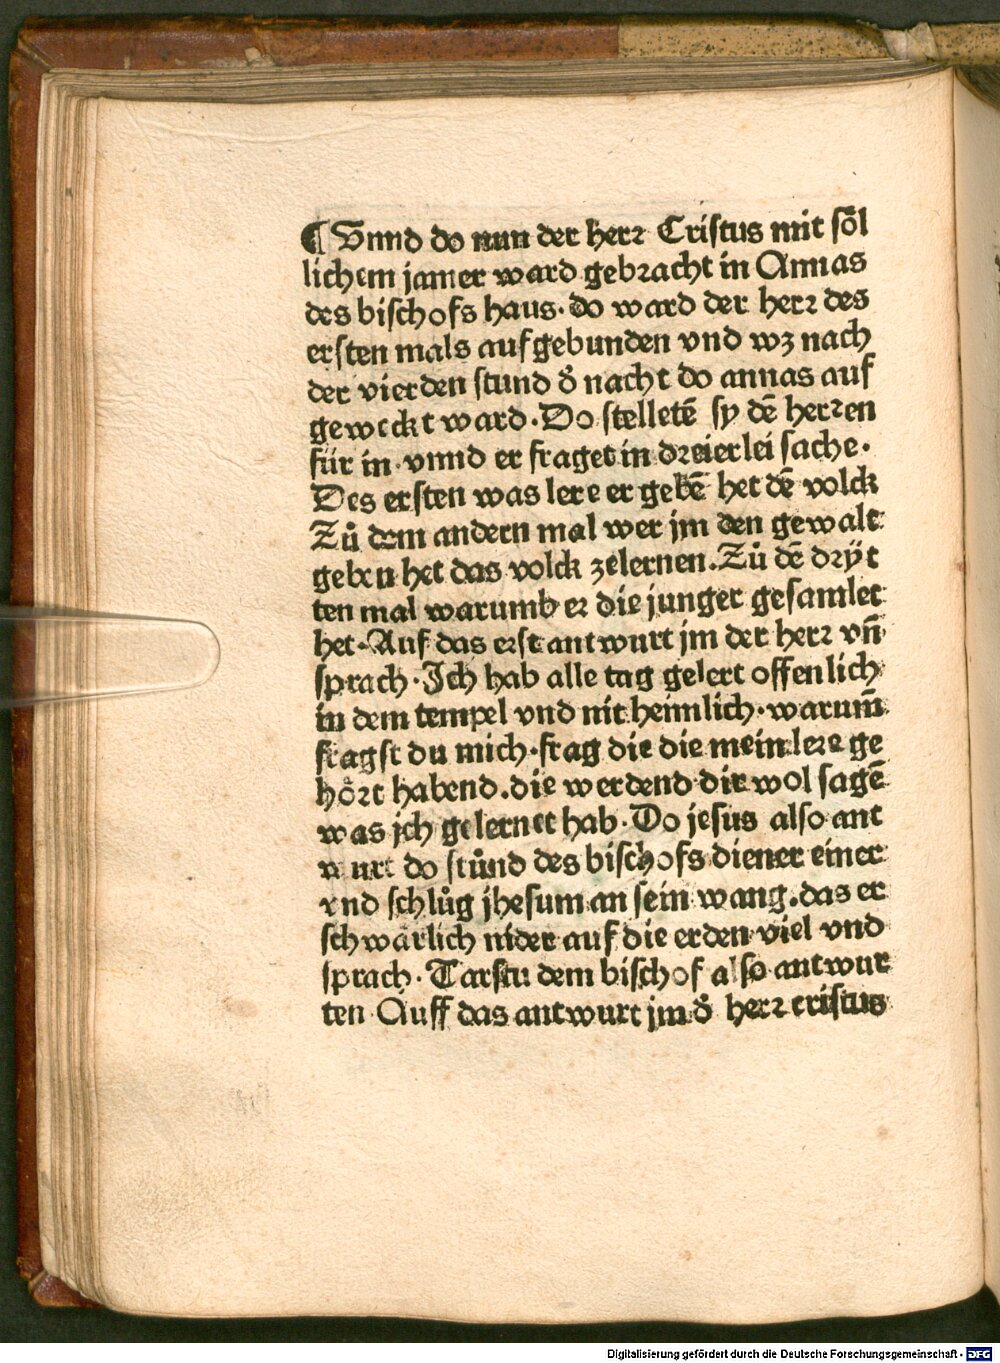 ¶ Vnnd do nun der herr Cristus mit soͤl
lichem jamer ward gebracht in Annas
des bischofs haus· do ward der herr des
ersten mals aufgebunden vnd wz nach
der vierden stund d̊ nacht do annas auf
geweckt ward· Do stelletē sy dē herren
für in· vnnd er fraget in dreierlei sache·
Des ersten was lere er gebē het dē volck
Zů dem andern mal wer jm den gewalt
geben het das volck zelernen. Zů dē dryt
ten mal warumb er die junger gesamlet
het· Auf das erst antwurt jm der herr vn̄
sprach· Ich hab alle tag gelert offenlich
in dem tempel vnd nit heimlich· warum̄
fragst du mich· frag die die mein lere ge
hoͤrt habend. die werdend dir wol sagē
was jch gelernet hab· Do jesus also ant
wurt do stůnd des bischofs diener einer
vnd schlůg jhesum an sein wang. das er
schwaͤrlich nider auf die erden viel vnd
sprach· Tarstu dem bischof also antwur
ten Auff das antwurt jm d̊ herr cristus
Digitalisierung gefördert durch die Deutsche Forschungsgemeinschaft - DFG